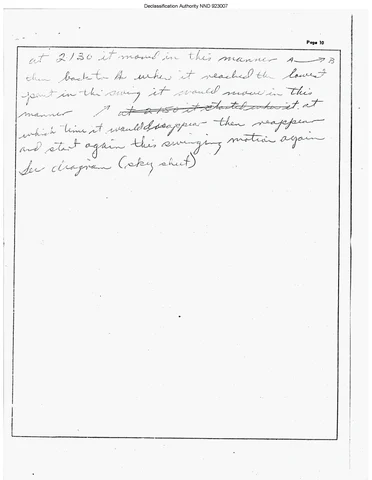 Declassification Authority NND 923007
Page 10
at 2130 it moved in this manner A B
then back to A when it reached the lowest
point in the swing it would move in this
manner at 2130 it started at
which time it would disappear then reappear
and start again this swinging motion again
See diagram (sky sheet)